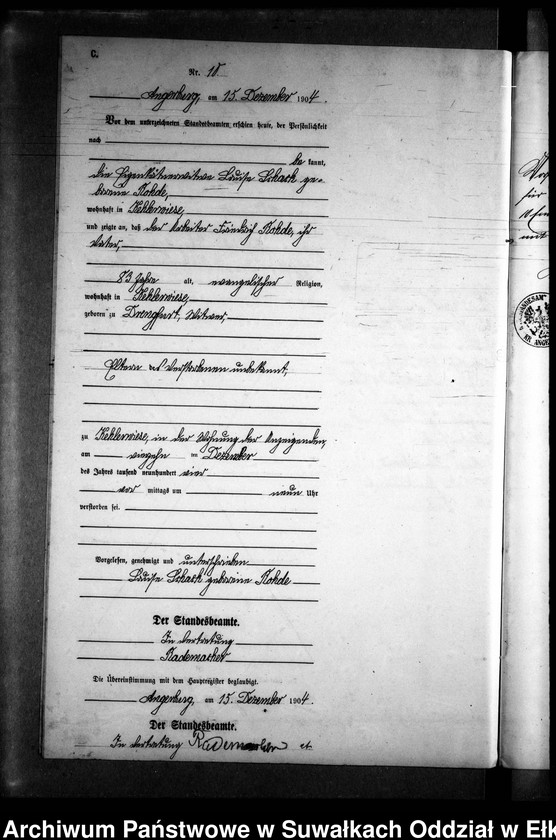 C.
Nr. 18
Angerburg, am 15. Dezember 1904.
Vor dem unterzeichneten Standesbeamten erschien heute, der Persönlichkeit
nach
be kannt,
die Eigenkätnerwitwe Louise Schack ge-
borene Rohde,
wohnhaft in Kehlerwiese,
und zeigte an, daß der Arbeiter Friedrich Rohde, ihr
Vater,
83 Jahre alt, evangelischer Religion,
wohnhaft in Kehlerwiese,
geboren zu Drengfurt, Witwer,
Eltern des Verstorbenen unbekannt,
zu Kehlerwiese, in der Wohnung der Anzeigenden,
am vierzehn ten Dezember
des Jahres tausend neunhundert vier
vor mittags um neun Uhr
verstorben sei.
Vorgelesen, genehmigt und unterschrieben
Louise Schack geborene Rohde
Der Standesbeamte.
In Vertretung
Rademacher
Die Übereinstimmung mit dem Hauptregister beglaubigt.
Angerburg, am 15. Dezember 1904.
Der Standesbeamte.
In Vertretung Rademacher
Archiwum Państwowe w Suwałkach Oddział w Ełk